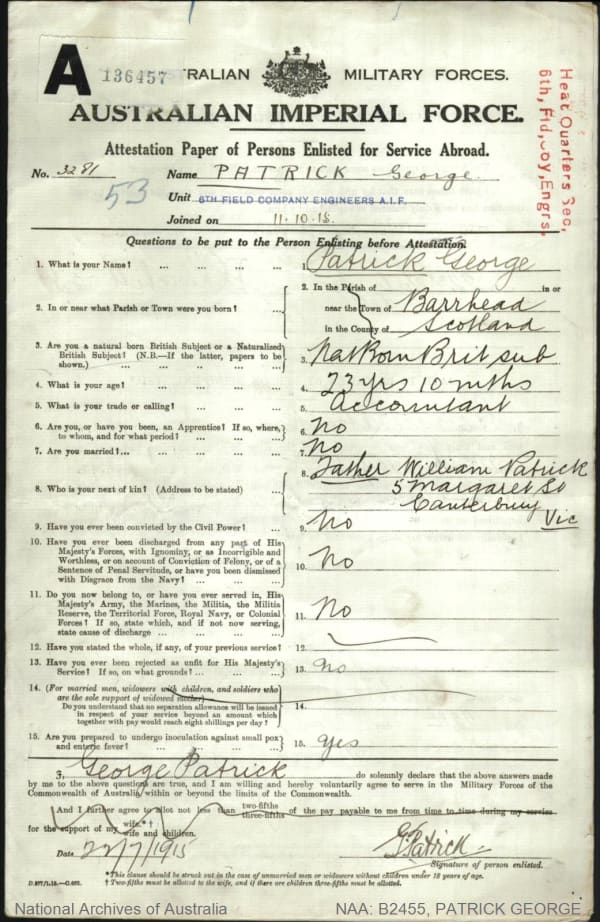 A
136457
AUSTRALIAN MILITARY FORCES.
AUSTRALIAN IMPERIAL FORCE.
Head Quarters Sec,
6th, Fld, Coy, Engrs,
Attestation Paper of Persons Enlisted for Service Abroad.
No. 3281 Name PATRICK George.
53
Unit 6TH FIELD COMPANY ENGINEERS A.I.F.
Joined on 11.10.15.
Questions to be put to the Person Enlisting before Attestation.
1. What is your Name? ... ... ... ... 1. Patrick George
2. In or near what Parish or Town were you born? ... ... 2. In the Parish of in or
near the Town of Barrhead
in the County of Scotland
3. Are you a natural born British Subject or a Naturalized
British Subject? (N.B.—If the latter, papers to be
shown.) ... ... ... ... ... 3. Nat Born Brit sub
4. What is your age? ... ... ... ... 4. 23 yrs 10 mths
5. What is your trade or calling? ... ... ... 5. accountant
6. Are you, or have you been, an Apprentice? If so, where,
to whom, and for what period? ... ... ... 6. No
7. Are you married?... ... ... ... ... 7. No
8. Who is your next of kin? (Address to be stated) ... ... 8. Father William Patrick
5 Margaret St
Canterbury
Vic
9. Have you ever been convicted by the Civil Power? ... ... 9. No
10. Have you ever been discharged from any part of His
Majesty's Forces, with Ignominy, or as Incorrigible and
Worthless, or on account of Conviction of Felony, or of a
Sentence of Penal Servitude, or have you been dismissed
with Disgrace from the Navy? ... ... ... 10. No
11. Do you now belong to, or have you ever served in, His
Majesty's Army, the Marines, the Militia, the Militia
Reserve, the Territorial Force, Royal Navy, or Colonial
Forces? If so, state which, and if not now serving,
state cause of discharge ... ... ... ... 11. No
12. Have you stated the whole, if any, of your previous service? 12.
13. Have you ever been rejected as unfit for His Majesty's
Service? If so, on what grounds? ... ... ... 13. No
14. (For married men, widowers with children, and soldiers who
are the sole support of widowed mother)
Do you understand that no separation allowance will be issued
in respect of your service beyond an amount which
together with pay would reach eight shillings per day? 14.
15. Are you prepared to undergo inoculation against small pox
and enteric fever? ... ... ... ... 15. yes
I, George Patrick do solemnly declare that the above answers made
by me to the above questions are true, and I am willing and hereby voluntarily agree to serve in the Military Forces of the
Commonwealth of Australia within or beyond the limits of the Commonwealth.
And I further agree to allot not less than two-fifths three-fifths of the pay payable to me from time to time during my service
for the support of my wife.*† wife and children.
Date 22/7/1915 G Patrick
Signature of person enlisted.
*This clause should be struck out in the case of unmarried men or widowers without children under 18 years of age.
D.877/1.15.—C.602. †Two-fifths must be allotted to the wife, and if there are children three-fifths must be allotted.
National Archives of Australia NAA: B2455, PATRICK GEORGE